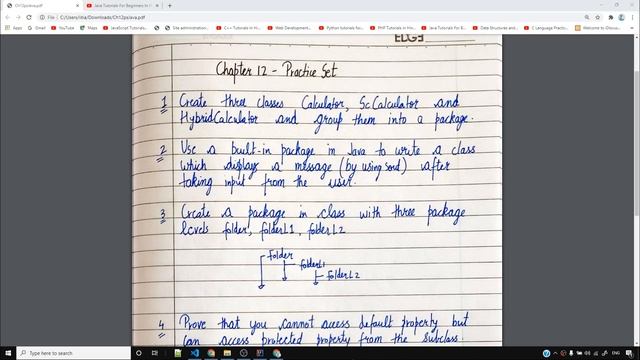 Ch12psJava.pdf
Java Tutorials For Beginners In H
File | C:/Users/
/Downloads/Ch12psJava.pdf
Apps
YouTube
Maps
JavaScript Tutorials
Site administration
C++ Tutorials In Hi
Web Development
Python tutorials fo
PHP Tutorials In Hi
Android Developm
Data Structures and
C Language Practic
EDGE
Chapter 12 - Practice Set
1 Create three classes Calculator, ScCalculator and
HybridCalculator and group them into a package.
2 Use a built-in package in Java to write a class
which displays a message (by using sout) after
taking input from the user.
3 Create a package in class with three package
levels folder, folderL1, folderL2
folder
folderL1
folderL2
4 Prove that you cannot access default property but
can access protected property from the subclass.
Type here to search
ENG